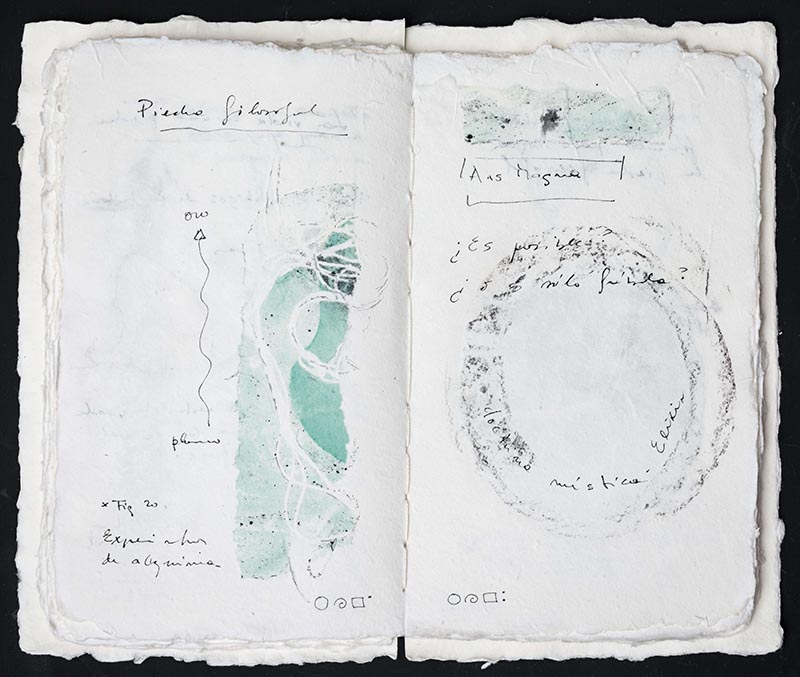 Piedra filosofal
oro
plomo
* Fig 20
Experimentos
de alquimia
Ars Magna
¿Es posible?
¿o es sólo fábula?
mística. Elixir